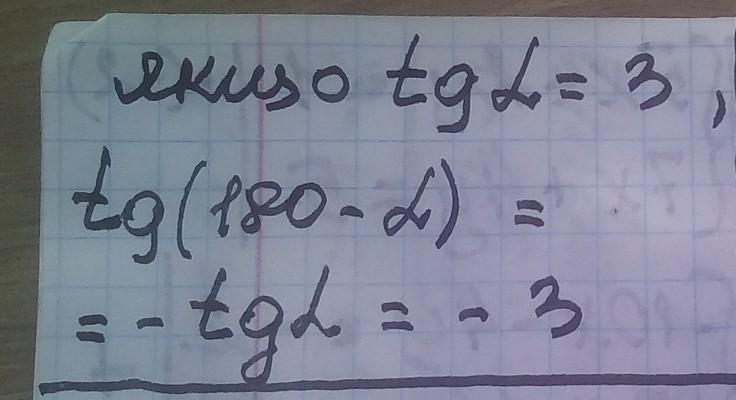 якщо tg α = 3,
tg(180 - α) =
= - tg α = - 3